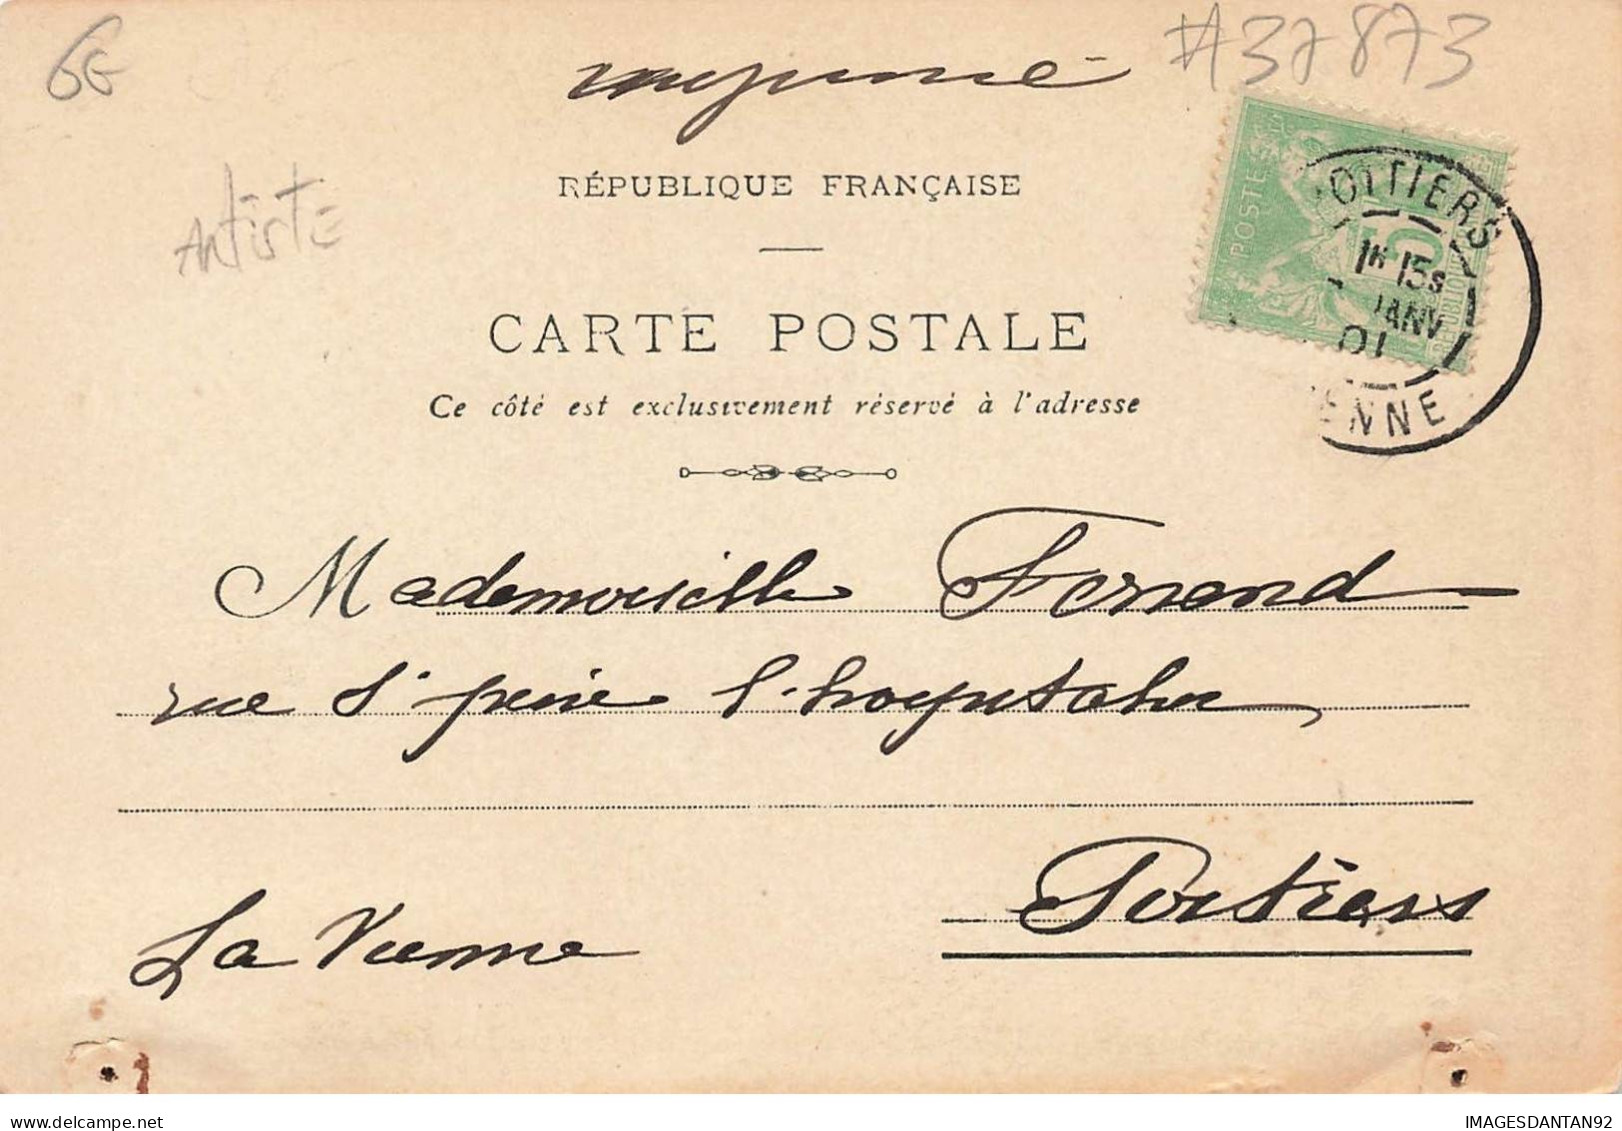 6€
#37873
imprimé
Artiste
RÉPUBLIQUE FRANÇAISE
CARTE POSTALE
Ce côté est exclusivement réservé à l'adresse
POSTES
5
REPUBLIQUE
POITIERS
1H 15S
JANV
01
VIENNE
Mademoiselle Ferrand
rue St pierre l'hospitalier
Poitiers
La Vienne
IMAGESDANTAN92